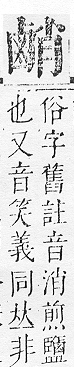 俗字舊註音消煎鹽
也又音笑義同𠀤非